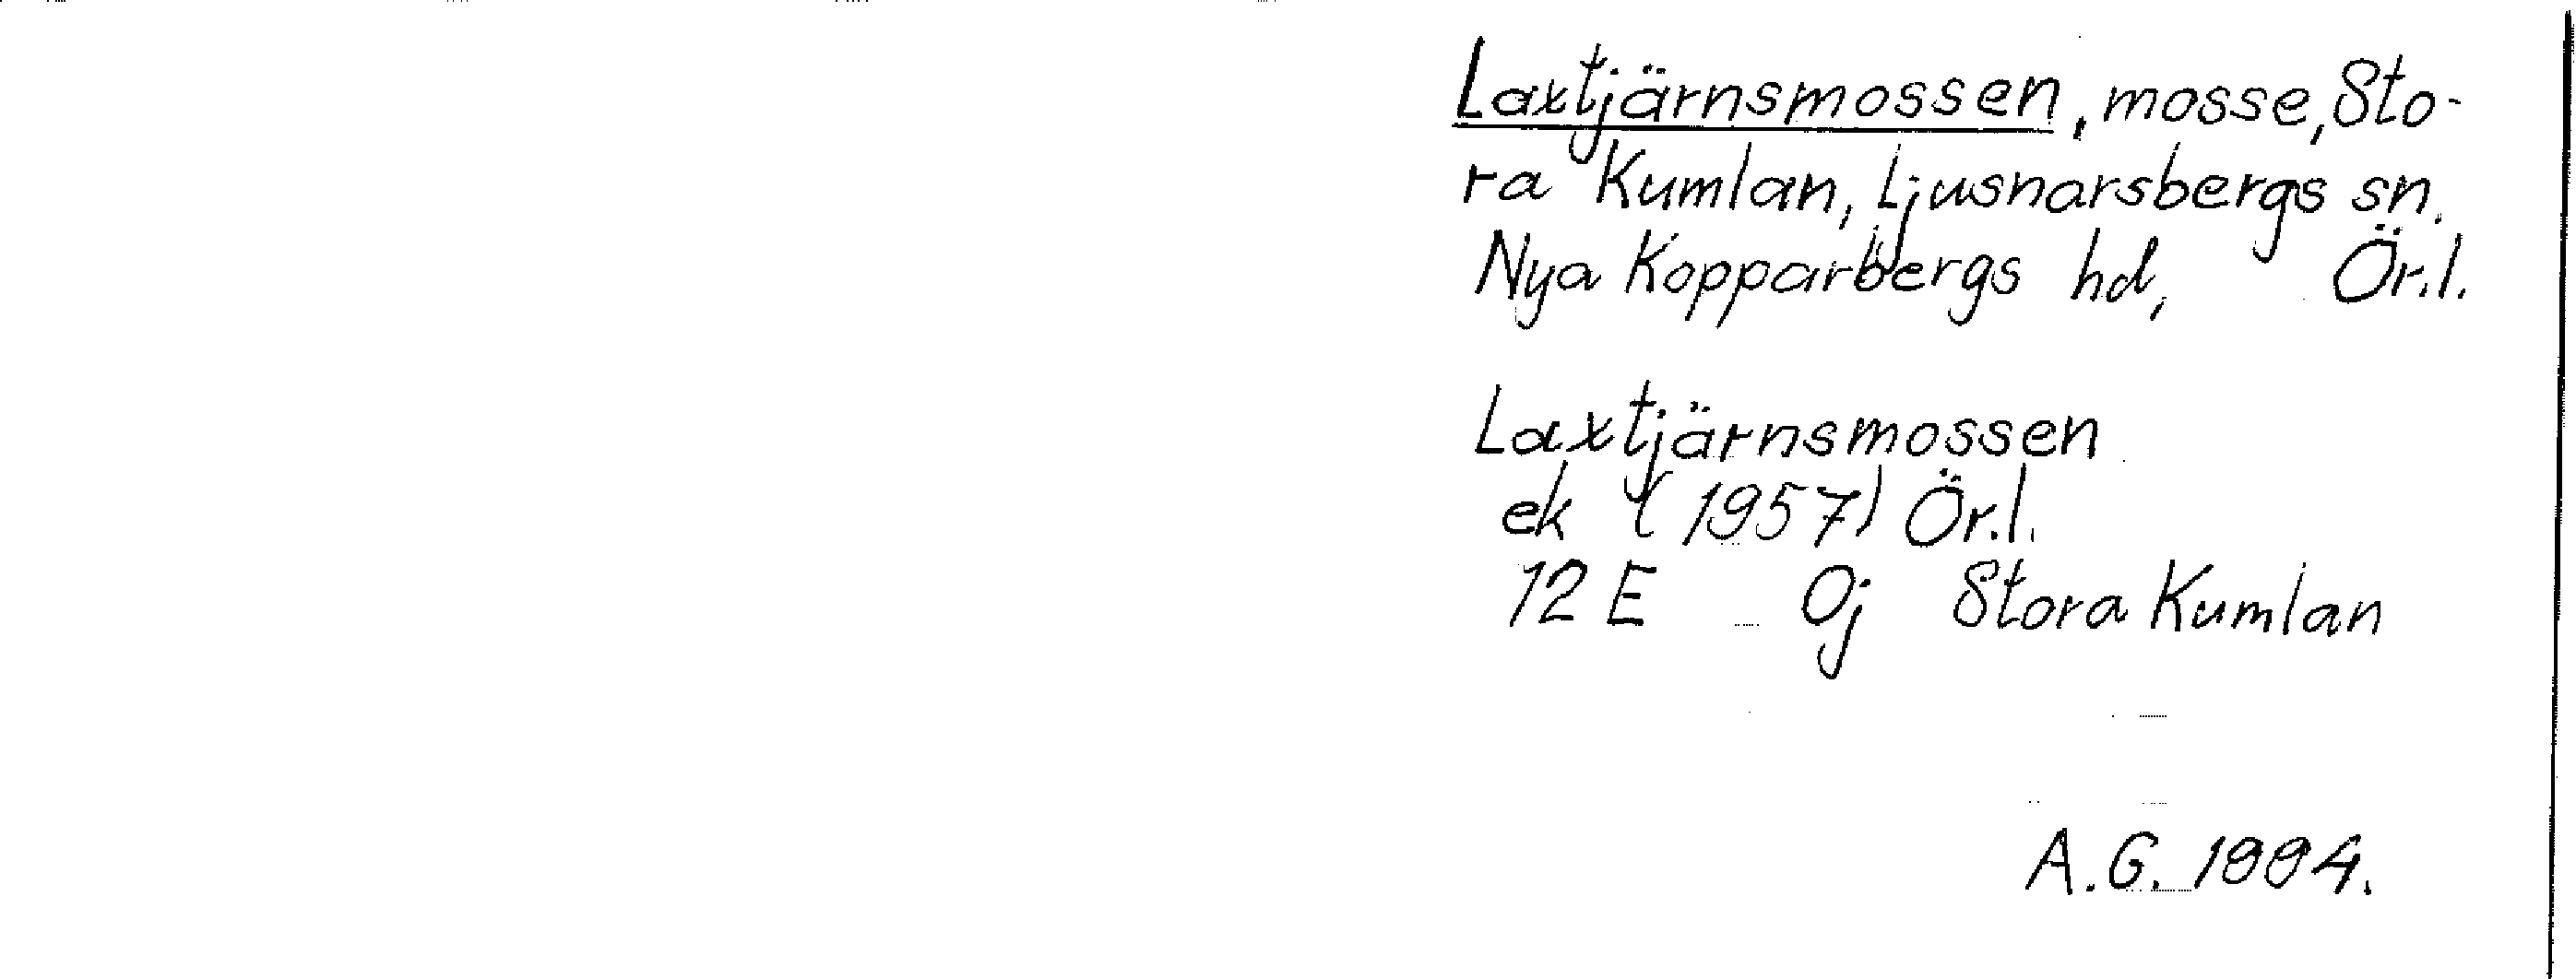 Laxtjärnsmossen, mosse, Sto-
ra Kumlan, Ljusnarsbergs sn.
Nya Kopparbergs hd, Ör.l.
Laxtjärnsmossen
ek (1957) Ör.l.
12 E 0j Stora Kumlan
A.G. 1994.